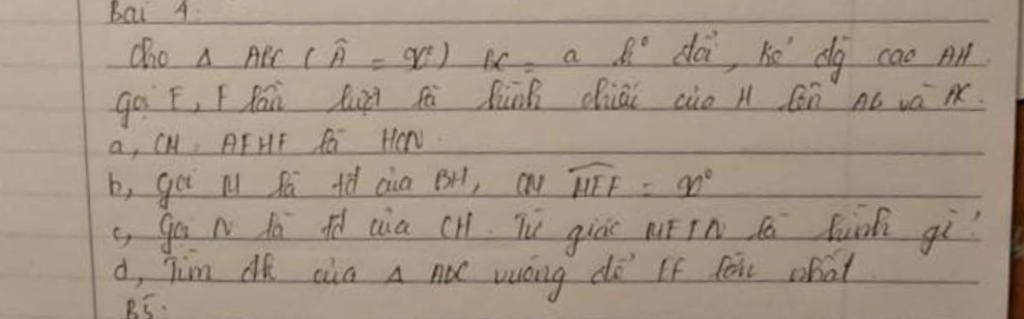 Bài 4:
Cho Δ ABC ( Â = 90°) BC = a k° đổi, kẻ đg cao AH.
Gọi E, F lần lượt là hình chiếu của H lên AB và AC.
a, CM: AEHF là HCN.
b, Gọi M là tđ của BH, CM MEF = 90°
c, Gọi N là tđ của CH. Tứ giác MEFN là hình gì?
d, Tìm đk của Δ ABC vuông để EF lớn nhất
B5: